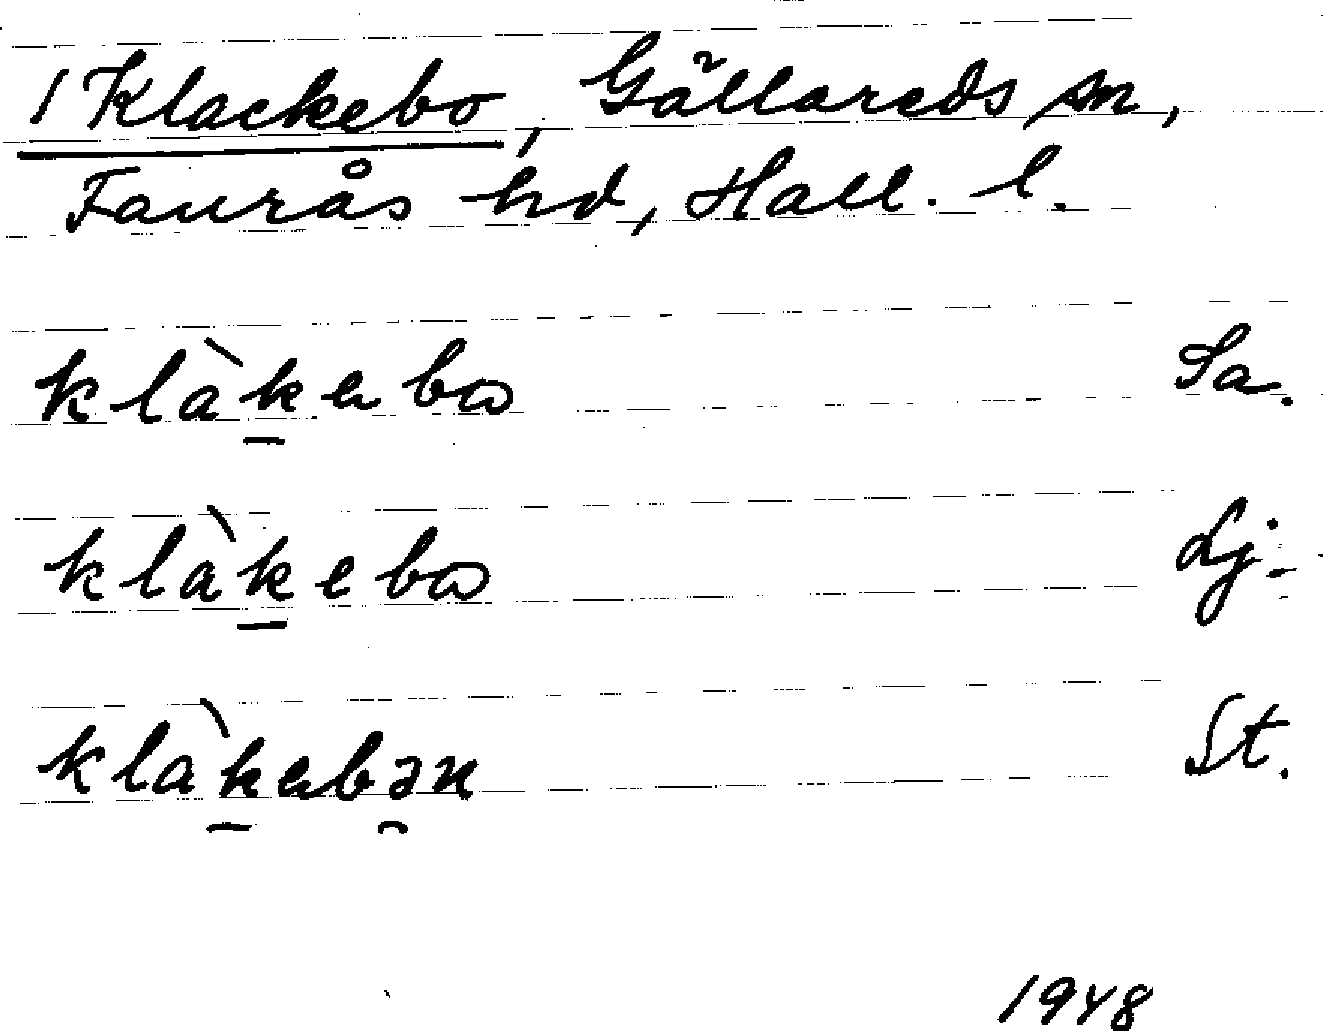 1 Klackebo, Gällareds sn,
Faurås hd, Hall. l.
klàk̲ebω Sa.
klàk̲ebω Lj.
klàk̲ebə̯n St.
1948